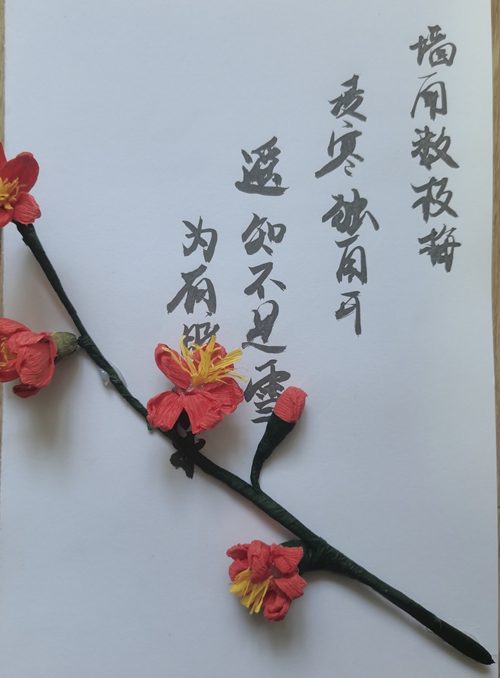 墙角数枝梅
凌寒独自开
遥知不是雪
为有暗来